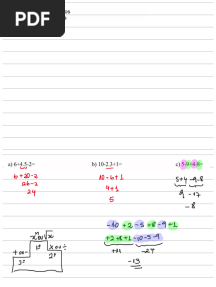 PDF
a) 6+4.5-2=
b) 10-2.3+1=
6+20-2
26-2
24
10-6+1
4+1
5
5+4 -9-8
9 -17
-8
-10 +2 -5 +8 -9 +1
+2+8+1 -10-5-9
+11 -24
-13
xⁿ ou √x
+ ou -
x ou ÷
1º
2º
3º